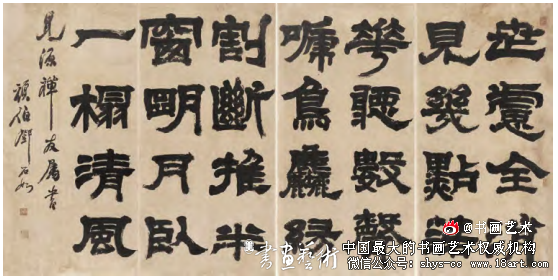 世慮全
見幾點
華聽數聲
嗁鳥塵緣
割斷推半
窗明月臥
一榻清風
見源禪友屬書
頑伯鄧石如
書画藝術
@书画艺术
中国最大的书画艺术权威机构
微信公众号：shys-cc www.18art.com